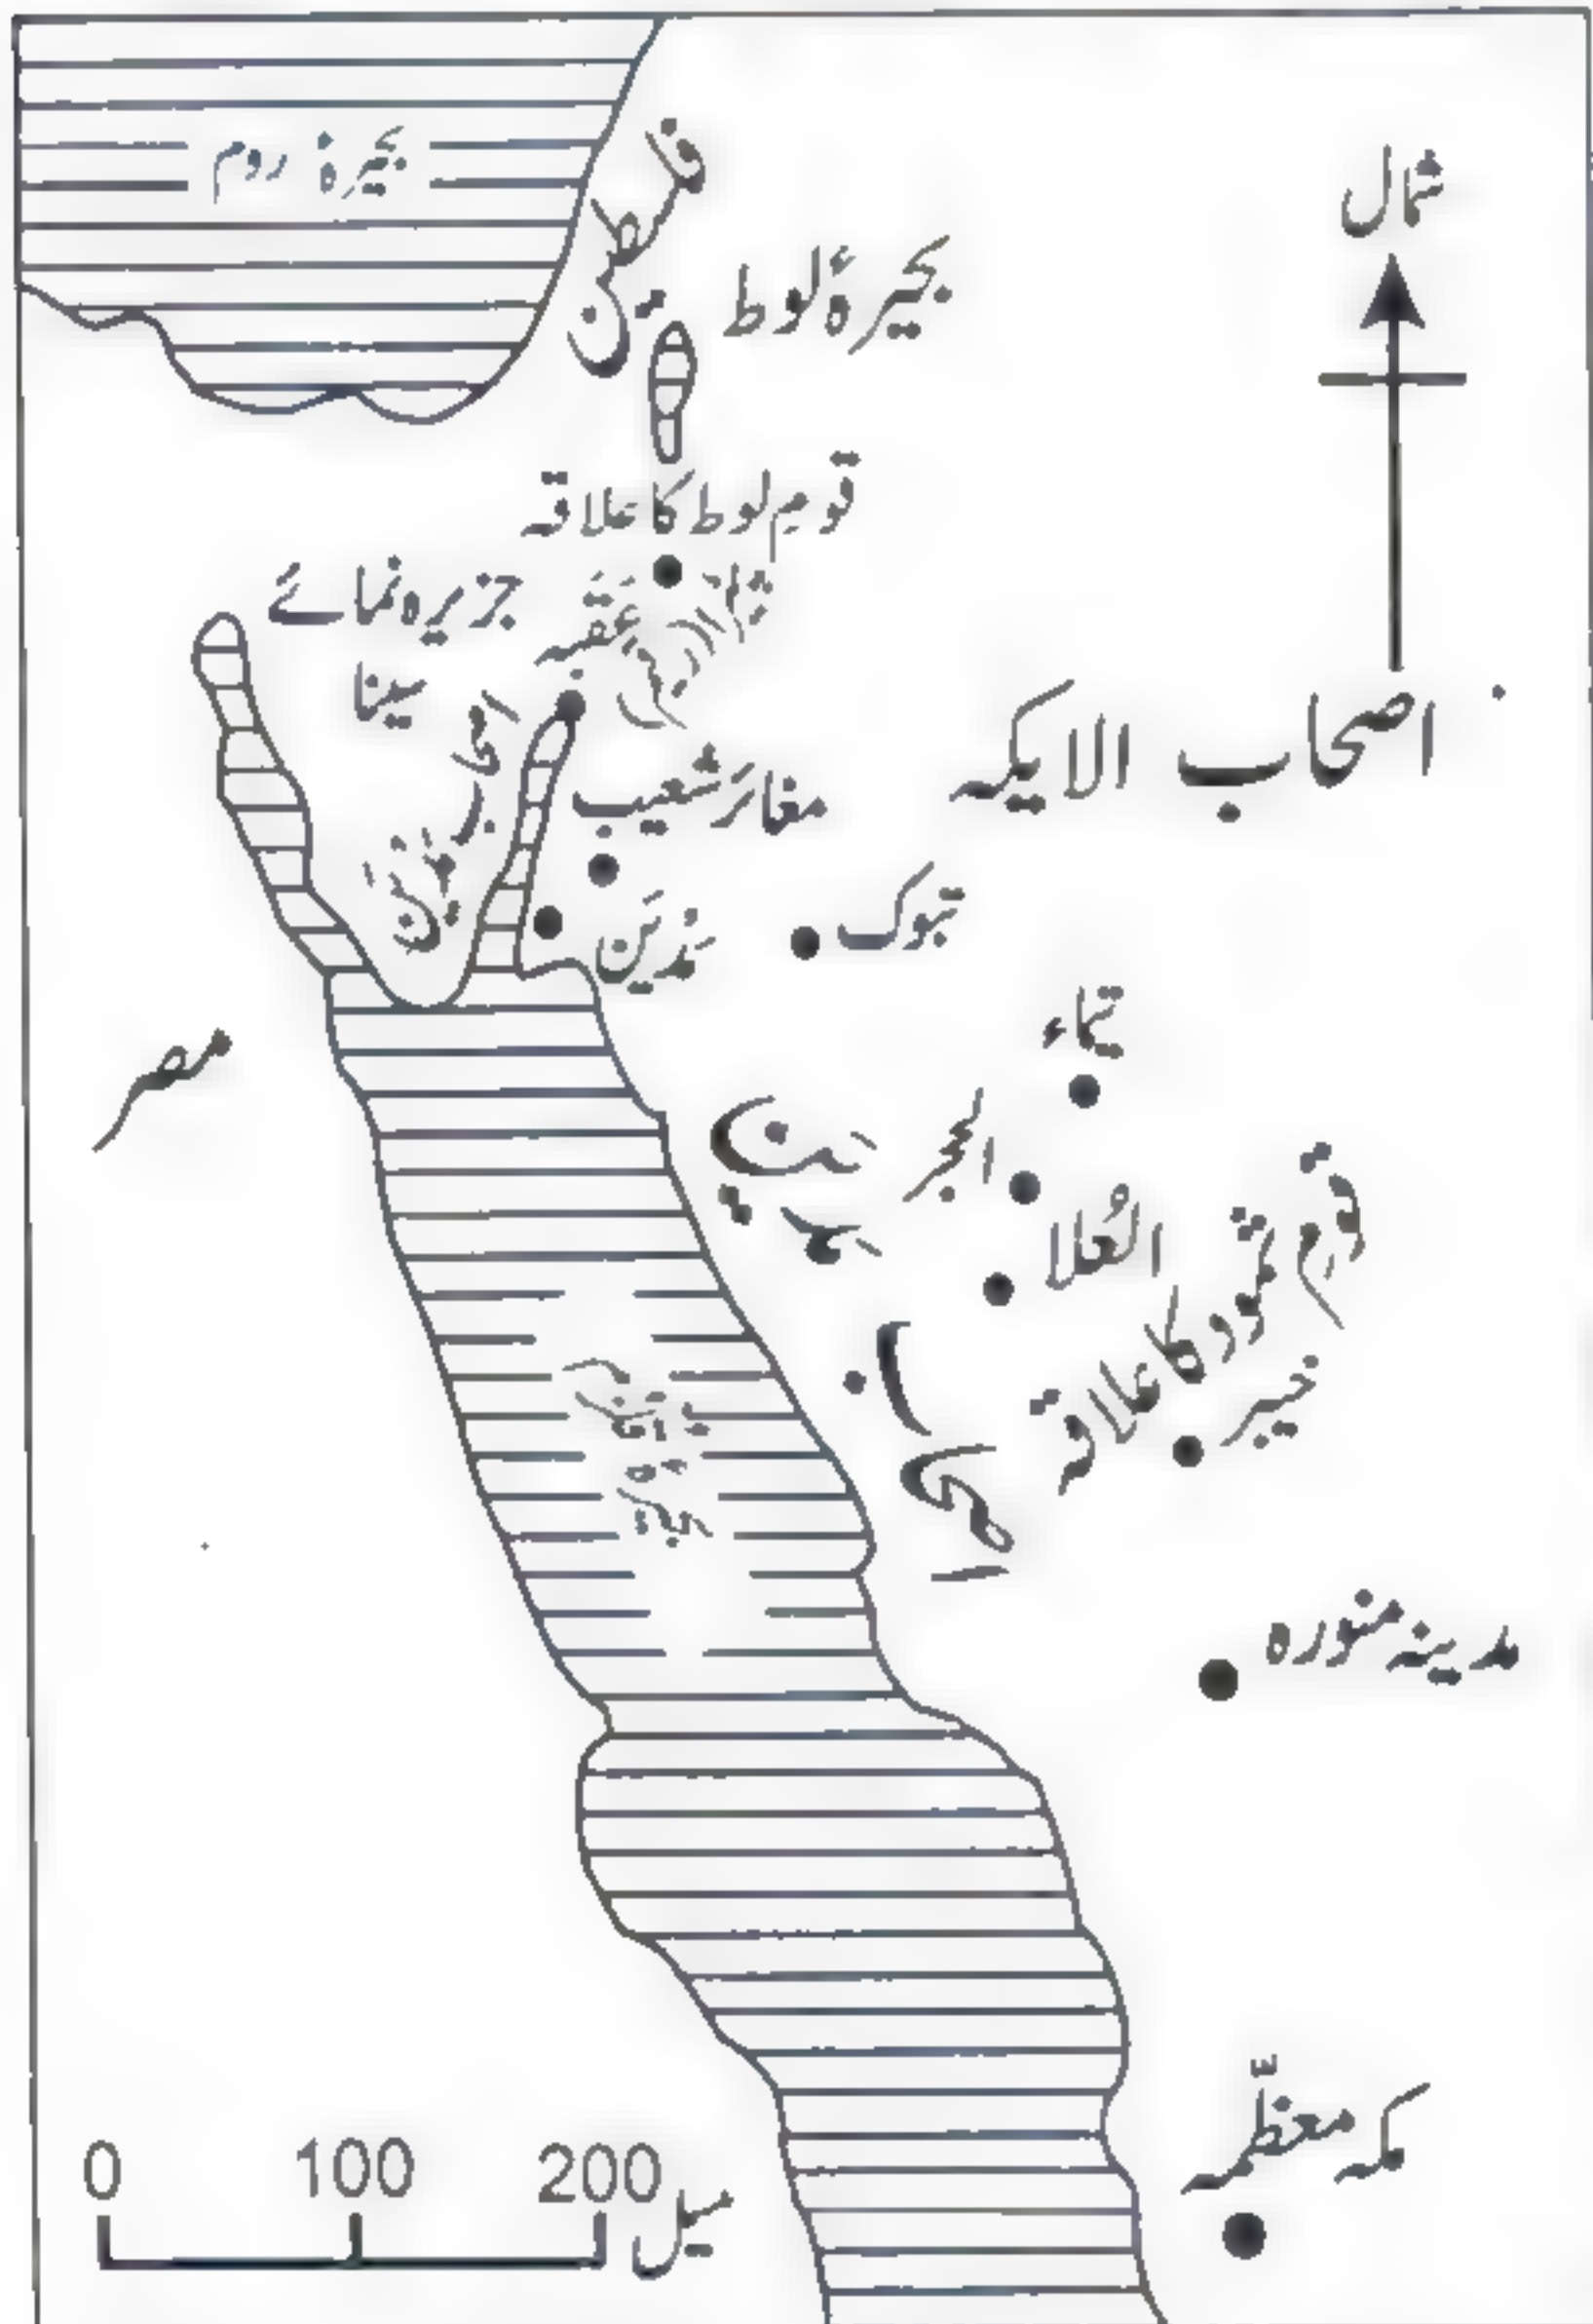 بحیرۂ روم
فلسطین
شمال
بحیرۂ لوط
قومِ لوط کا علاقہ
جزیرہ نمائے
سینا
عقبہ
اصحاب الایکہ
مغائر شعیب
مَدین
تبوک
تیماء
مصر
الحجر
العُلا
قوم ثمود کا علاقہ
خیبر
بحیرۂ قلزم
مدینہ منورہ
مکہ معظّمہ
0 100 200 میل